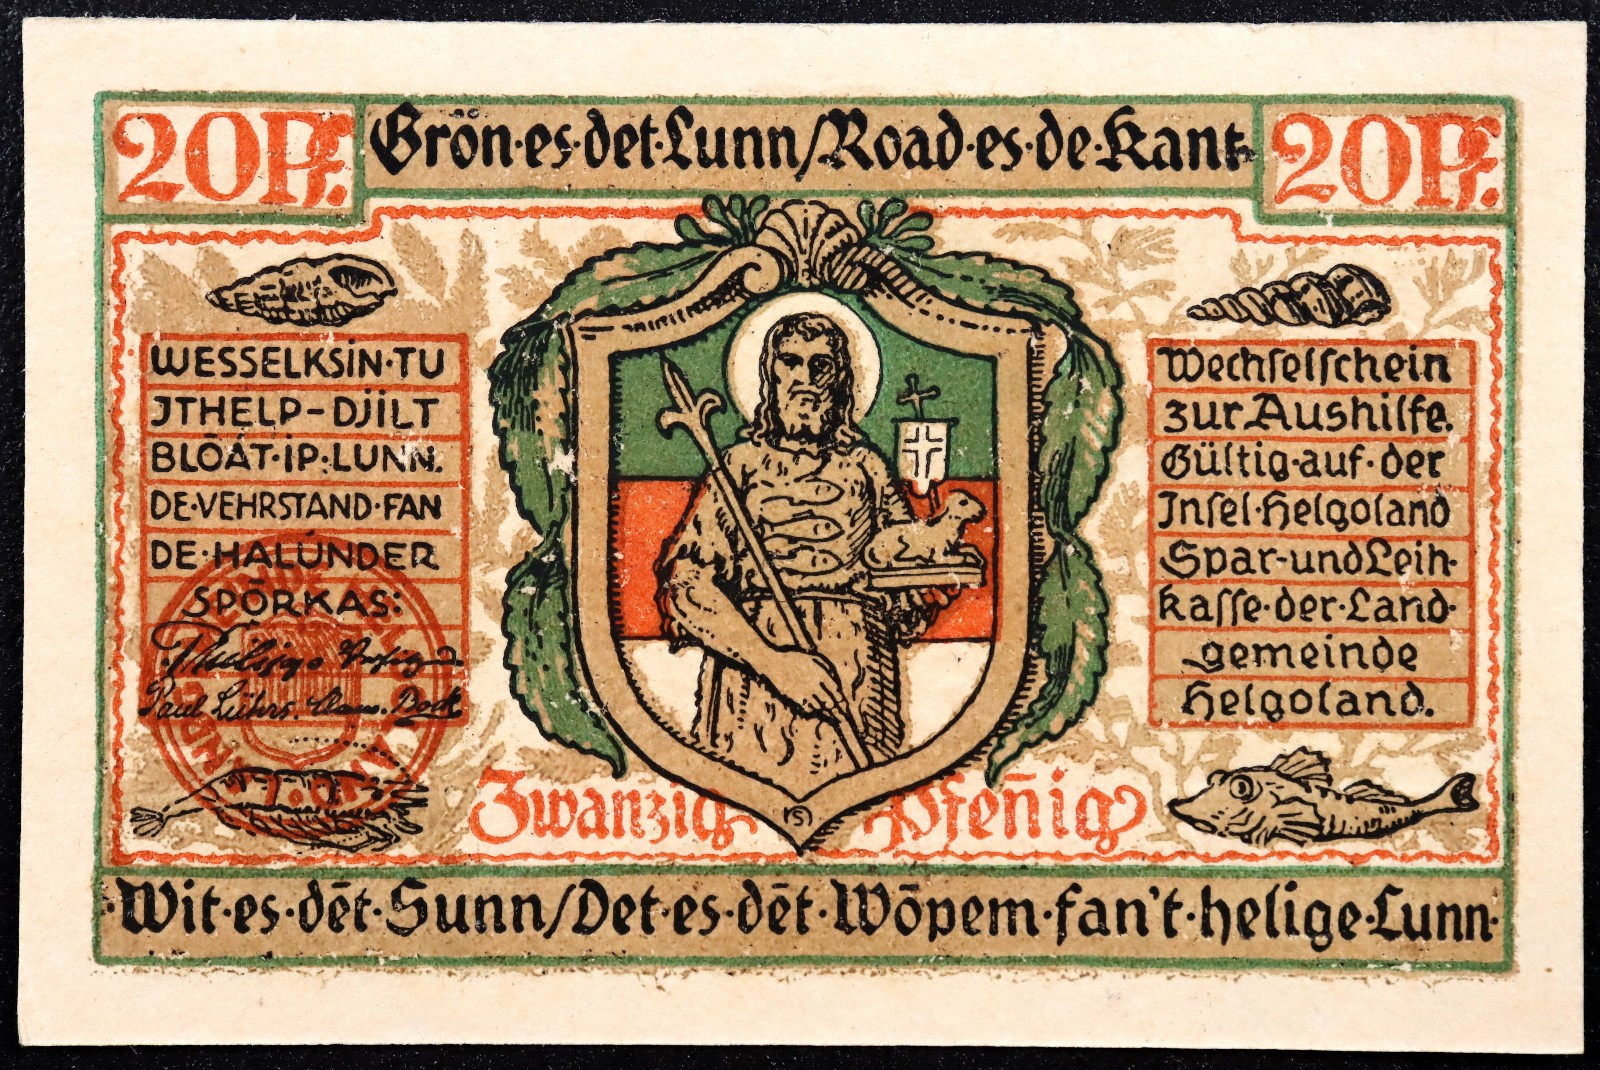 20Pf.
Grön·es·det·Lunn/Road·es·de·Kant·
20Pf.
WESSELKSiN·TU
JTHELP-DJiLT
BLOÄT·iP·LUNN.
DE·VEHRSTAND·FAN
DE·HALÚNDER
SPÖRKAS:
Paul Lührs. Claus. Bock
Wechselschein
zur Aushilfe.
Gültig·auf·der
Insel·Helgoland
Spar-und Leih-
kasse·der·Land-
gemeinde
Helgoland.
Zwanzig Pfen̄ig
Wit·es·dēt·Sunn/Det·es·dēt·Wōpem·fan't·helige·Lunn·